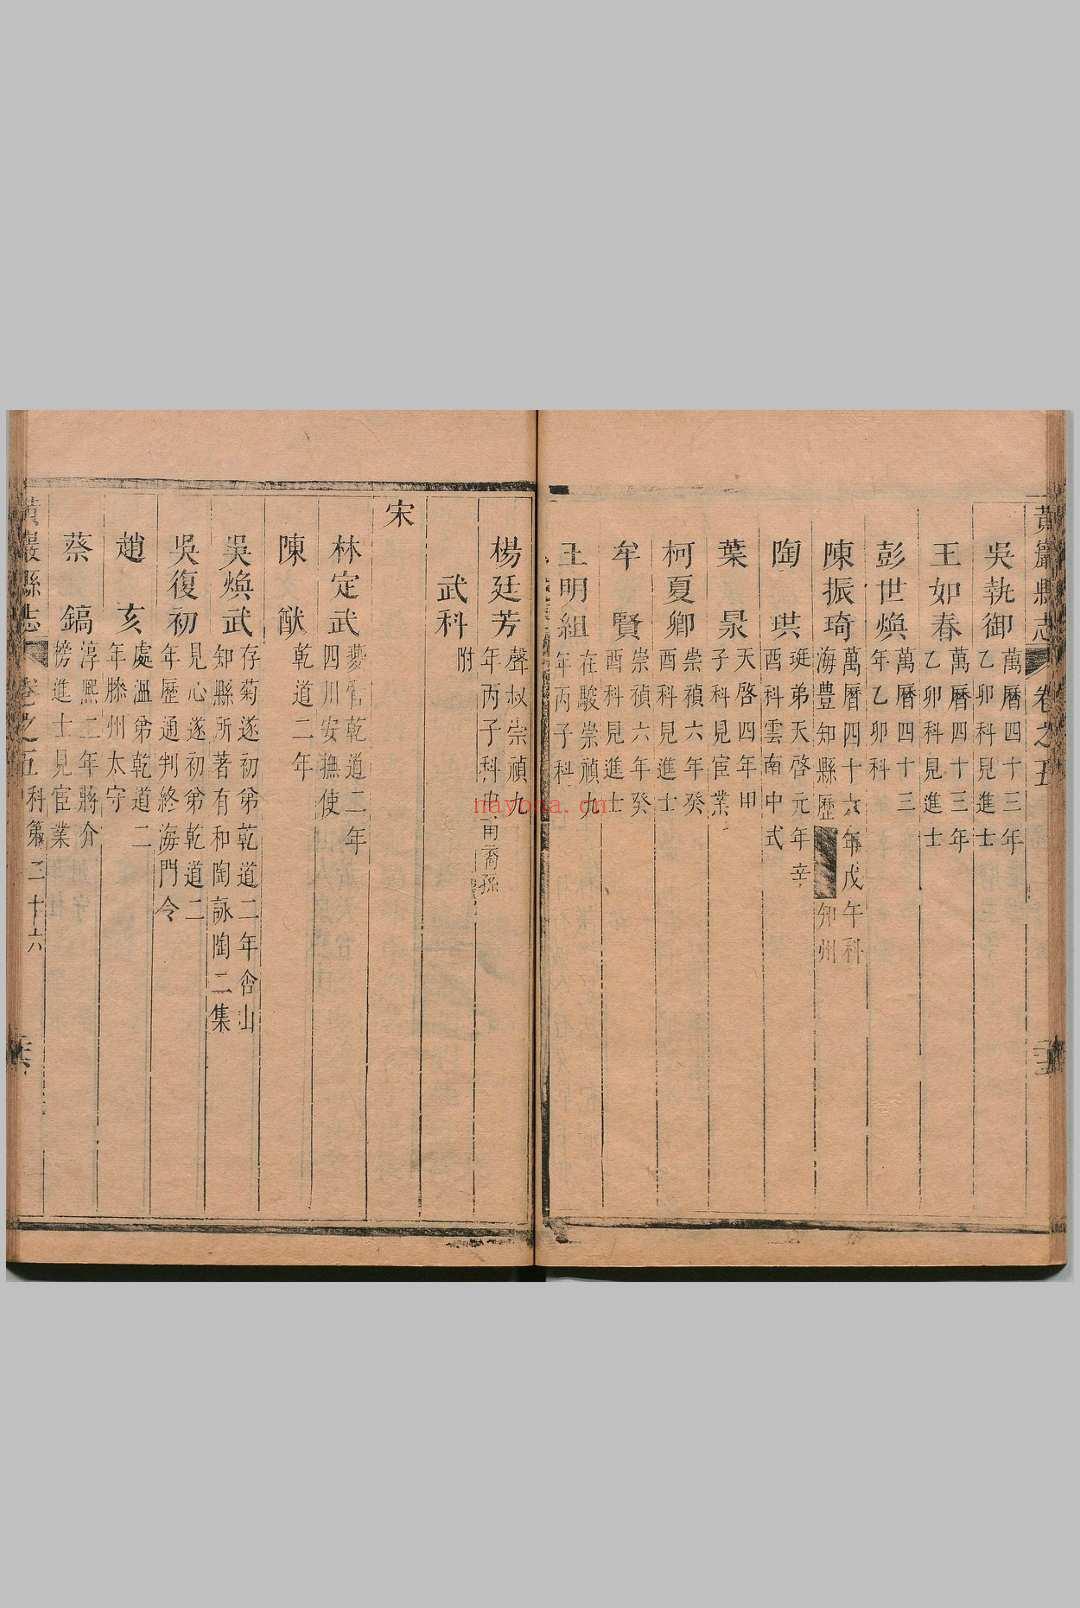 黃巖縣志 卷之五
吳執御 萬曆四十三年
乙卯科見進士
王如春 萬曆四十三年
乙卯科見進士
彭世煥 萬曆四十三
年乙卯科
陳振琦 萬曆四十六年戊午科
海豐知縣歷 知州
陶珙 珽弟天啓元年辛
酉科雲南中式
葉㫤 天啓四年甲
子科見宦業
柯夏卿 崇禎六年癸
酉科見進士
牟賢 崇禎六年癸
酉科見進士
王明組 在駿崇禎九
年丙子科
楊廷芳 聲叔崇禎九
年丙子科
武科 附
宋
林定武 乾道二年
四川安撫使
陳猷 乾道二年
吳煥武 存菊遂初弟乾道二年
知縣所著有和陶詠陶二集
吳復初 見心遂初弟乾道二
年歷通判終海門令
趙亥 處溫弟乾道二
年滕州太守
蔡鎬 淳熙二年蔣介
榜進士見宦業
黃巖縣志 卷之五 科第 二十六
hayoua.cn